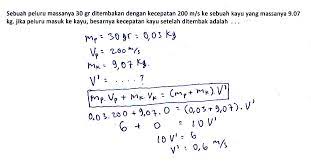 Sebuah peluru massanya 30 gr ditembakan dengan kecepatan 200 m/s ke sebuah kayu yang massanya 9.07
kg, jika peluru masuk ke kayu, besarnya kecepatan kayu setelah ditembak adalah . . .
mp = 30 gr = 0,03 kg
Vp = 200 m/s
mk = 9,07 kg
V' = . . . . ?
mp. Vp + mk Vk = (mp + mk) V'
0,03. 200 + 9,07. 0 = (0,03 + 9,07). V'
6 + 0 = 10 V'
10 V' = 6
V' = 0,6 m/s